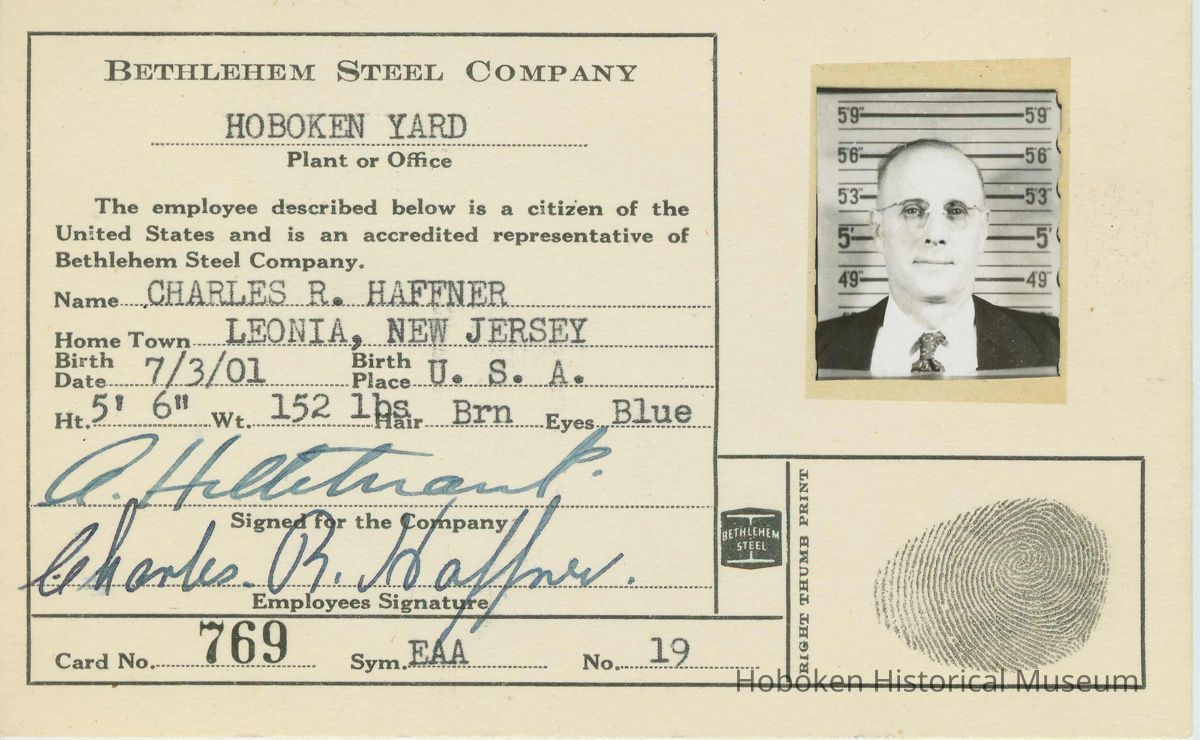 BETHLEHEM STEEL COMPANY
HOBOKEN YARD
Plant or Office
The employee described below is a citizen of the
United States and is an accredited representative of
Bethlehem Steel Company.
Name CHARLES R. HAFFNER
Home Town LEONIA, NEW JERSEY
Birth Date 7/3/01 Birth Place U. S. A.
Ht. 5' 6" Wt. 152 lbs Hair Brn Eyes Blue
A.
Signed for the Company
Charles R. Haffner.
Employees Signature
Card No. 769 Sym. EAA No. 19
5'9" 5'9"
5'6" 5'6"
5'3" 5'3"
5' 5'
4'9" 4'9"
BETHLEHEM
STEEL
RIGHT THUMB PRINT
Hoboken Historical Museum